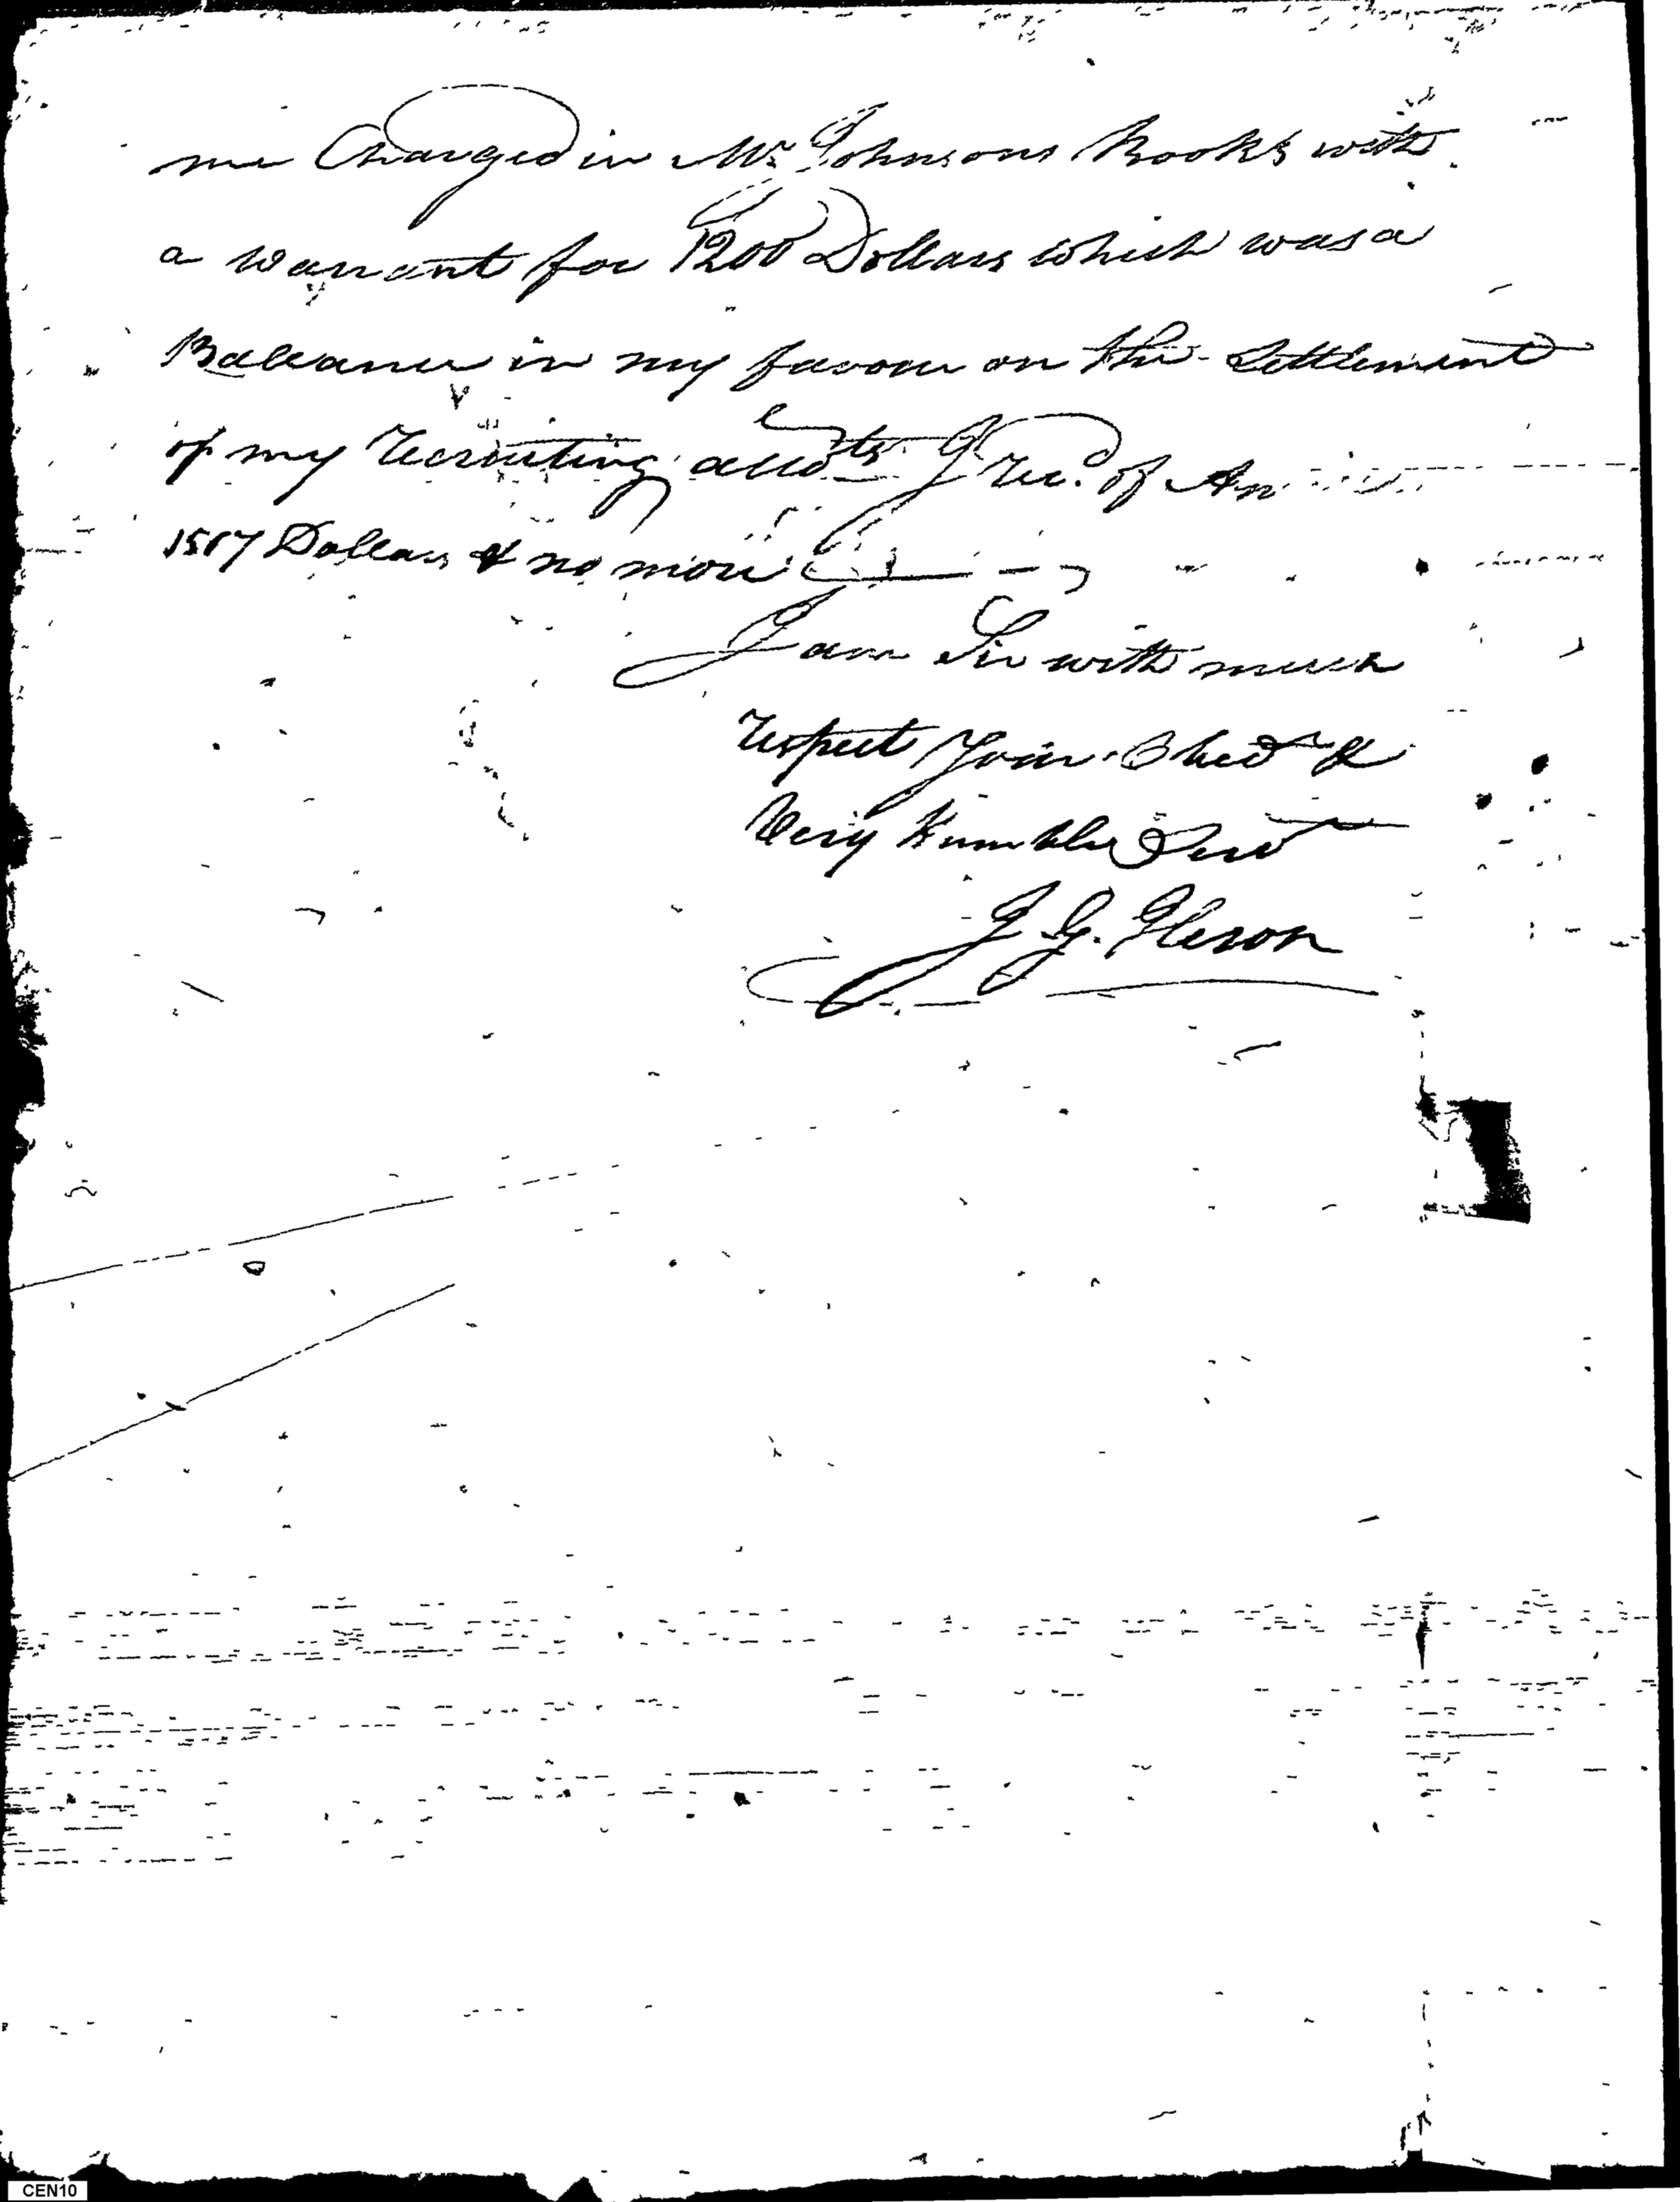 me Charged in Mr Johnsons Books with
a Warrant for 1200 Dollars which was a
Ballance in my favour on the Settlement
of my Recruiting accots I Rec.d of
1507 Dollars & no more
I am Sir with much
respect Your Obed &
Very Humble Servt
J. G. Heron
CEN10